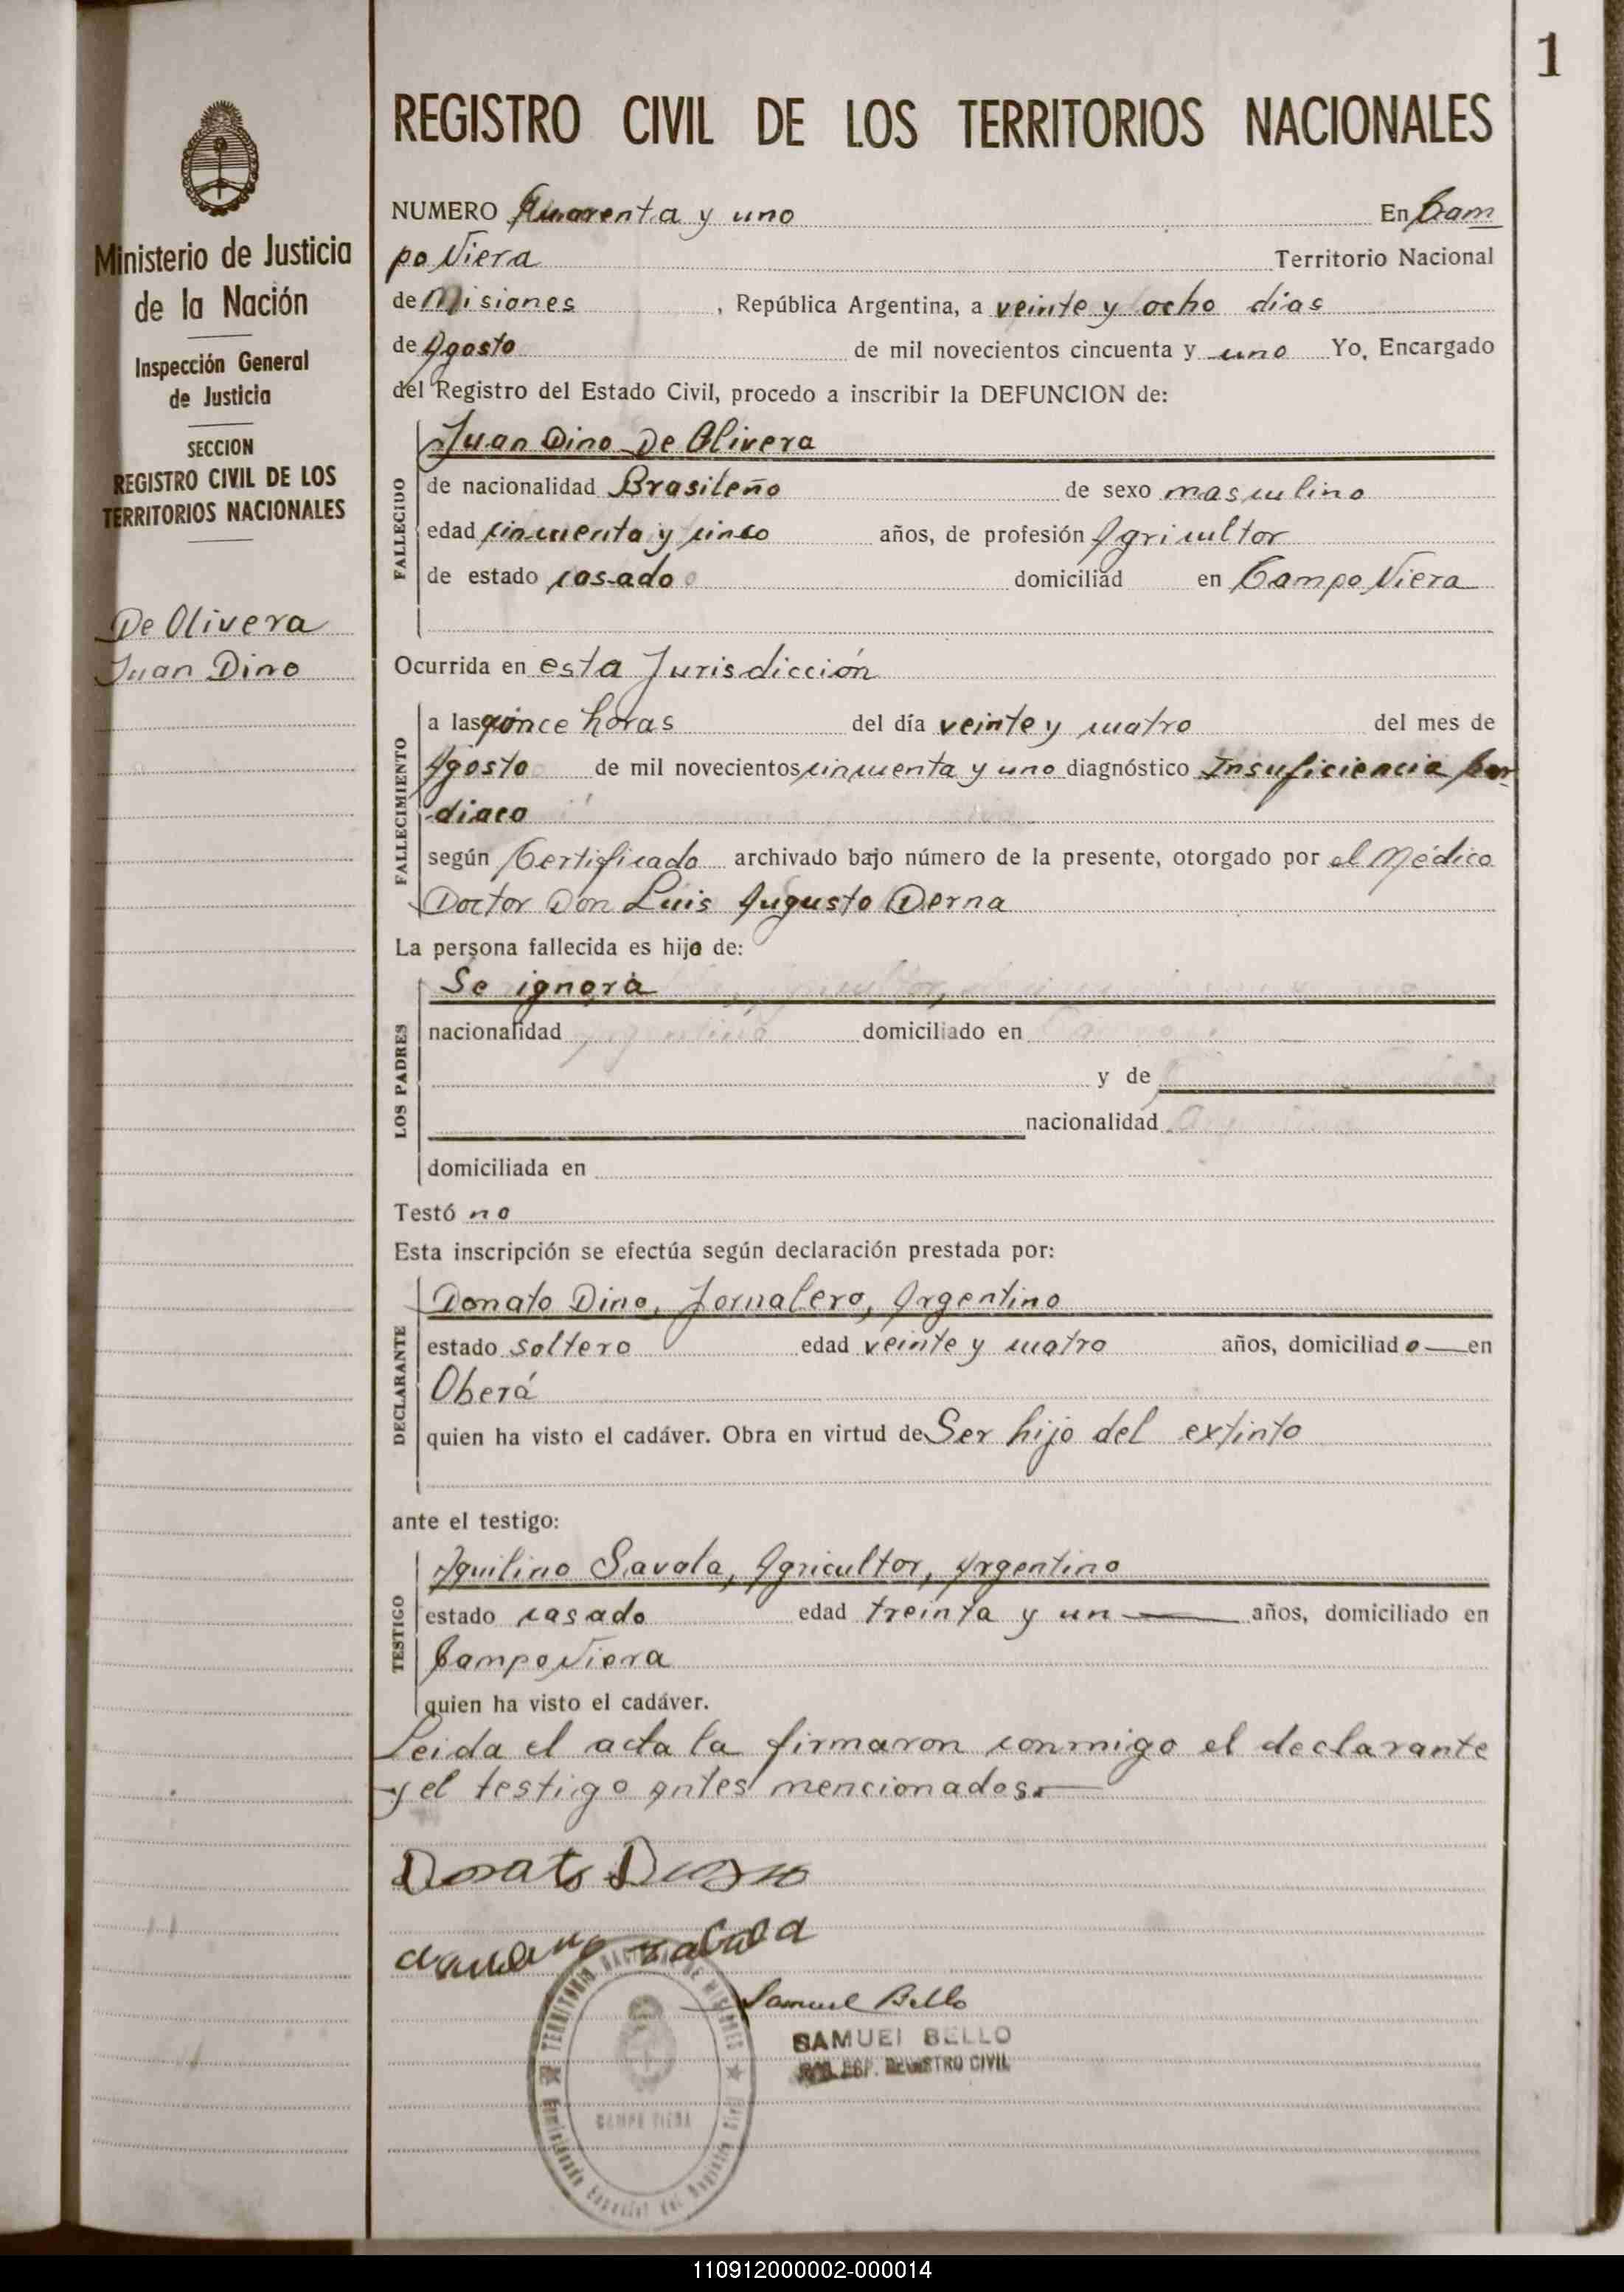 1
REGISTRO CIVIL DE LOS TERRITORIOS NACIONALES
Ministerio de Justicia
de la Nación
Inspección General
de Justicia
SECCION
REGISTRO CIVIL DE LOS
TERRITORIOS NACIONALES
De Olivera
Juan Dino
NUMERO Quarenta y uno En Cam
po Viera Territorio Nacional
de Misiones , República Argentina, a veinte y ocho dias
de Agosto de mil novecientos cincuenta y uno Yo, Encargado
del Registro del Estado Civil, procedo a inscribir la DEFUNCION de:
FALLECIDO
Juan Dino De Olivera
de nacionalidad Brasileño de sexo masculino
edad cincuenta y cinco años, de profesión Agricultor
de estado casado domiciliad en Campo Viera
Ocurrida en esta Jurisdicción
FALLECIMIENTO
a las quince horas del día veinte y cuatro del mes de
Agosto de mil novecientos cincuenta y uno diagnóstico Insuficiencia Car
diaco
según Certificado archivado bajo número de la presente, otorgado por el Médico
Doctor Don Luis Augusto Derna
La persona fallecida es hijo de:
LOS PADRES
Se ignora
nacionalidad domiciliado en
y de
nacionalidad
domiciliada en
Testó no
Esta inscripción se efectúa según declaración prestada por:
DECLARANTE
Donato Dino, Jornalero, Argentino
estado soltero edad veinte y cuatro años, domiciliad o en
Oberá
quien ha visto el cadáver. Obra en virtud de Ser hijo del extinto
ante el testigo:
TESTIGO
Aquilino Savala, Agricultor, Argentino
estado casado edad treinta y un años, domiciliado en
Campo Viera
quien ha visto el cadáver.
Leida el acta la firmaron conmigo el declarante
y el testigo antes mencionados.
Donato Dino
Samuel Bello
SAMUEL BELLO
REGISTRO CIVIL
TERRITORIO NACIONAL DE MISIONES
CAMPO VIERA
110912000002-000014